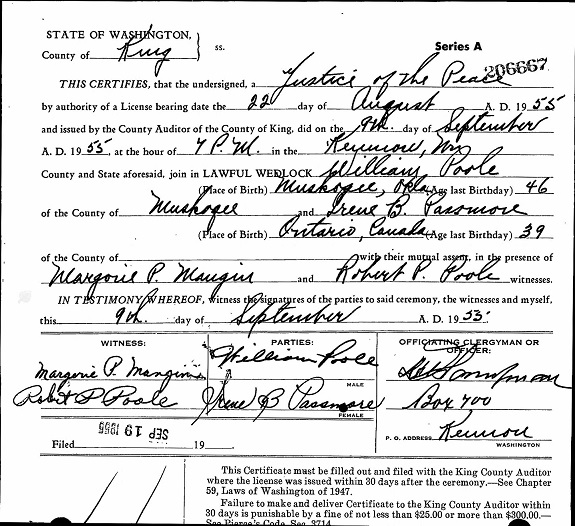 STATE OF WASHINGTON,
County of King ss.
Series A
206667
THIS CERTIFIES, that the undersigned, a Justice of the Peace
by authority of a License bearing date the 22 day of August A. D. 1955
and issued by the County Auditor of the County of King, did on the 9th. day of September
A. D. 1955, at the hour of 7 P.M. in the Kenmore, Wn
County and State aforesaid, join in LAWFUL WEDLOCK William Poole
(Place of Birth) Muskogee, Okla (Age last Birthday) 46
of the County of Muskogee and Irene B. Passmore
(Place of Birth) Ontario, Canada (Age last Birthday) 39
of the County of with their mutual assent, in the presence of
Margorie P. Mangin and Robert P. Poole witnesses.
IN TESTIMONY WHEREOF, witness the signatures of the parties to said ceremony, the witnesses and myself,
this 9th. day of September A. D. 1955.
WITNESS:
Margorie P. Mangin
Robert P Poole
PARTIES:
William Poole
MALE
Irene B Passmore
FEMALE
OFFICIATING CLERGYMAN OR
OFFICER:
Box 700
P. O. ADDRESS Kenmore
WASHINGTON
SEP 19 1955
Filed 19
This Certificate must be filled out and filed with the King County Auditor
where the license was issued within 30 days after the ceremony.—See Chapter
59, Laws of Washington of 1947.
Failure to make and deliver Certificate to the King County Auditor within
30 days is punishable by a fine of not less than $25.00 or more than $300.00.—
See Pierce's Code, Sec. 3714.